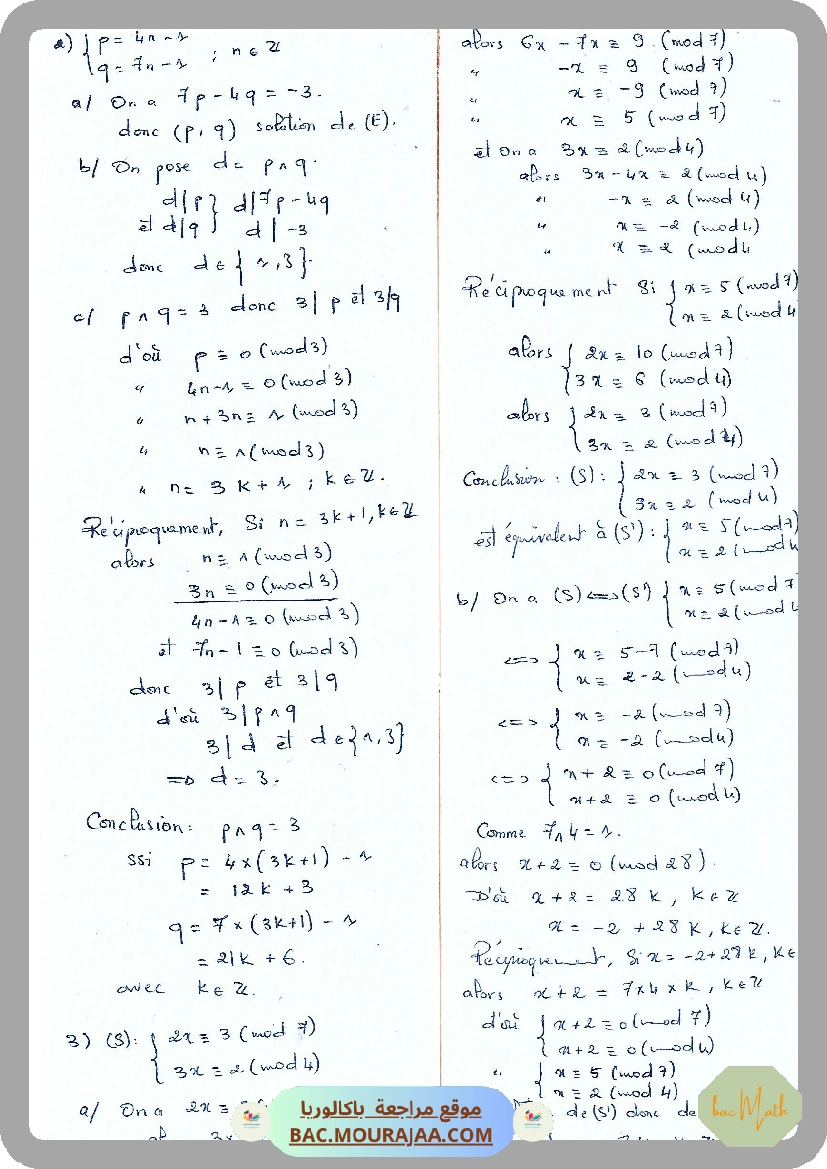 2) { p = 4n - 1
q = 7n - 1 ; n ∈ ℤ
a/ On a 7p - 4q = -3.
donc (p, q) solution de (E).
b/ On pose d = p ∧ q.
d|p } d|7p - 4q
et d|q } d | -3
donc d ∈ { 1, 3 }.
c/ p ∧ q = 3 donc 3| p et 3|q
d'où p ≡ 0 (mod 3)
" 4n - 1 ≡ 0 (mod 3)
" n + 3n ≡ 1 (mod 3)
" n ≡ 1 (mod 3)
" n = 3k + 1 ; k ∈ ℤ.
Réciproquement, Si n = 3k+1, k∈ℤ
alors n ≡ 1 (mod 3)
3n ≡ 0 (mod 3)
4n - 1 ≡ 0 (mod 3)
et 7n - 1 ≡ 0 (mod 3)
donc 3| p et 3|q
d'où 3|p∧q
3|d et d∈{1,3}
⇒ d = 3.
Conclusion : p∧q = 3
ssi p = 4×(3k+1) - 1
= 12k + 3
q = 7×(3k+1) - 1
= 21k + 6.
avec k ∈ ℤ.
3) (S): { 2x ≡ 3 (mod 7)
3x ≡ 2 (mod 4)
a/ On a 2x ≡
3x
alors 6x - 7x ≡ 9 (mod 7)
" -x ≡ 9 (mod 7)
" x ≡ -9 (mod 7)
" x ≡ 5 (mod 7)
et On a 3x ≡ 2 (mod 4)
alors 3x - 4x ≡ 2 (mod 4)
" -x ≡ 2 (mod 4)
" x ≡ -2 (mod 4)
" x ≡ 2 (mod 4
Réciproquement Si { x ≡ 5 (mod 7)
x ≡ 2 (mod 4
alors { 2x ≡ 10 (mod 7)
3x ≡ 6 (mod 4)
alors { 2x ≡ 3 (mod 7)
3x ≡ 2 (mod 4)
Conclusion : (S) : { 2x ≡ 3 (mod 7)
3x ≡ 2 (mod 4)
est équivalent à (S') : { x ≡ 5 (mod 7)
x ≡ 2 (mod 4
b/ On a (S) ⟺ (S') { x ≡ 5 (mod 7
x ≡ 2 (mod 4
⟺ { x ≡ 5-7 (mod 7)
x ≡ 2-2 (mod 4)
⟺ { x ≡ -2 (mod 7)
x ≡ -2 (mod 4)
⟺ { x + 2 ≡ 0 (mod 7)
x+2 ≡ 0 (mod 4)
Comme 7∧4 = 1.
alors x+2 ≡ 0 (mod 28).
D'où x+2 = 28k, k∈ℤ
x = -2 + 28k, k∈ℤ.
Réciproquement, Si x = -2+28k, k∈
alors x+2 = 7×4×k, k∈ℤ
d'où { x+2 ≡ 0 (mod 7)
x+2 ≡ 0 (mod 4)
" { x ≡ 5 (mod 7)
x ≡ 2 (mod 4)
de (S') donc de
موقع مراجعة باكالوريا
BAC.MOURAJAA.COM
bac Math